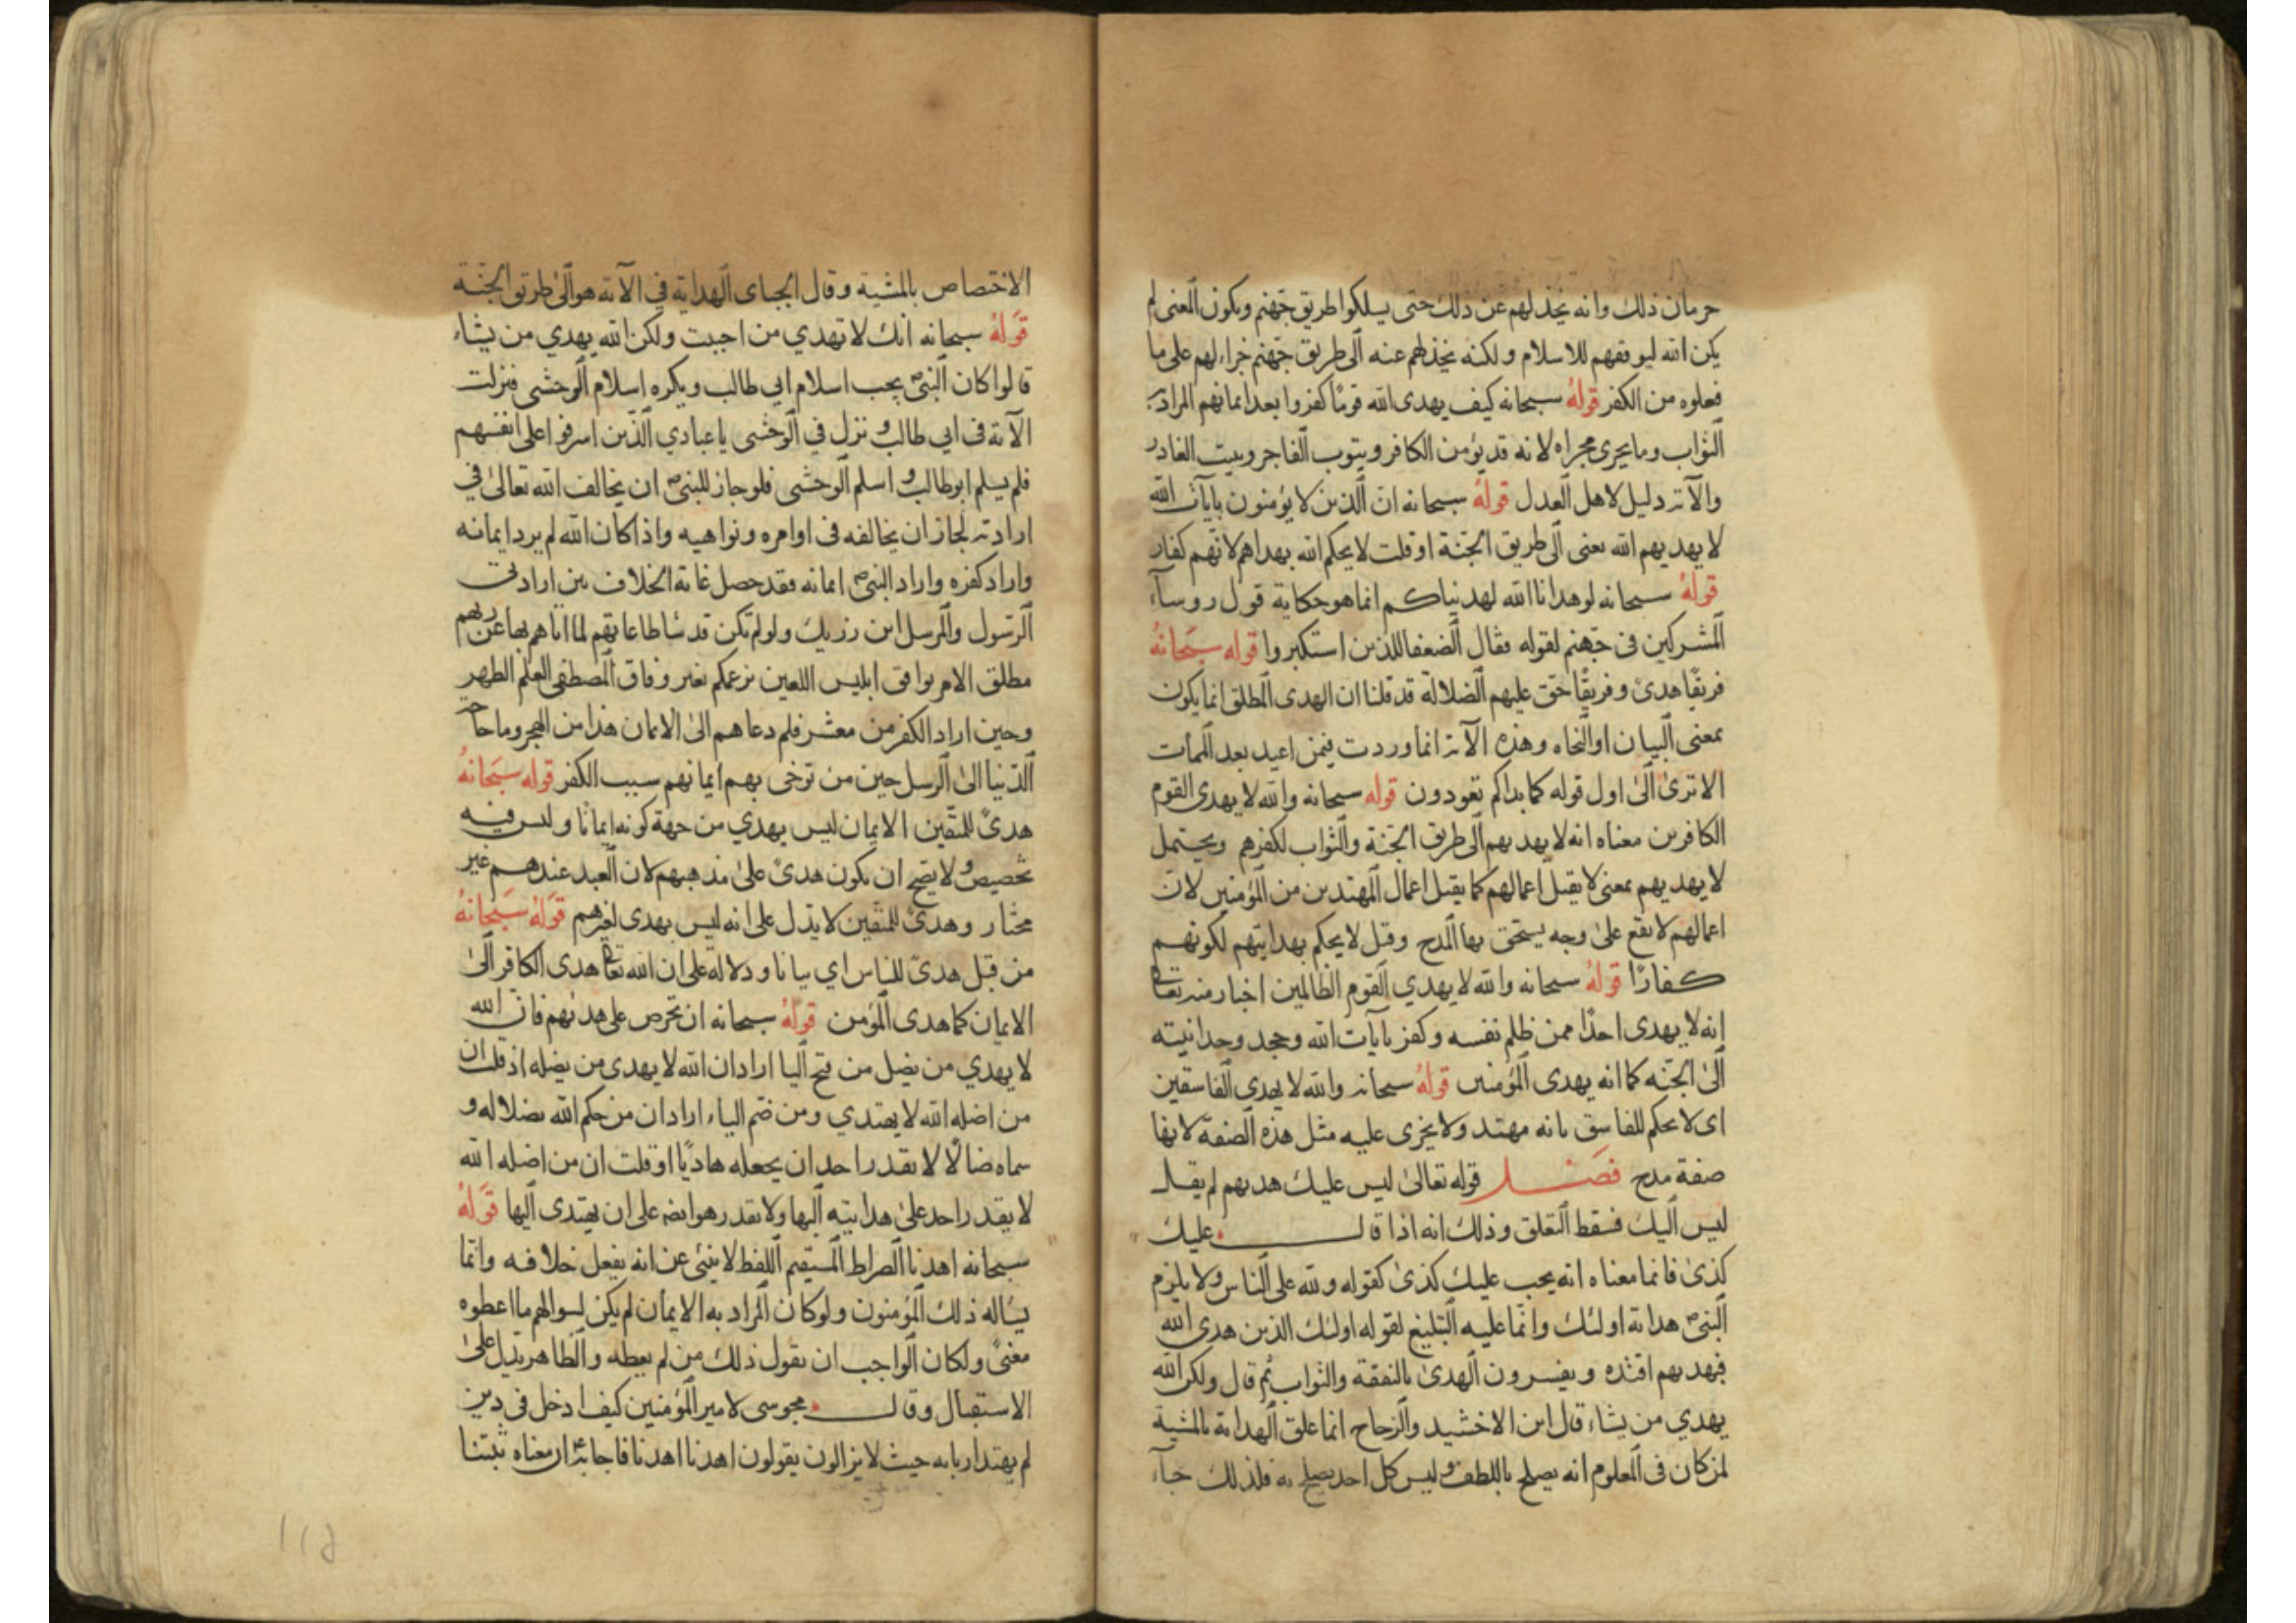 حرمان ذلك وانه يخذلهم عن ذلك حتى يسلكوا طريق جهنم ويكون المعنى لم
يكن الله ليوفقهم للاسلام ولكنه يخذلهم عنه الى طريق جهنم جزاء لهم على ما
فعلوه من الكفر قوله سبحانه كيف يهدى الله قومًا كفروا بعد ايمانهم المراد به
الثواب وما يجرى مجراه لانه قد يؤمن الكافر ويتوب الفاجر
والآية دليل لاهل العدل قوله سبحانه ان الذين لا يؤمنون بآيات الله
لا يهديهم الله يعنى الى طريق الجنة او قلت لا يحكم الله بهداهم لانهم كفار
قوله سبحانه لو هدانا الله لهديناكم انما هو حكاية قول روساء
المشركين فى جهنم لقوله فقال الضعفا للذين استكبروا قوله سبحانه
فريقًا هدى وفريقًا حق عليهم الضلالة قد قلنا ان الهدى المطلق انما يكون
بمعنى البيان او النجاه وهذه الآية انما وردت فيمن اعيد بعد الممات
الا ترى الى اول قوله كما بداكم تعودون قوله سبحانه والله لا يهدى القوم
الكافرين معناه انه لا يهديهم الى طريق الجنة والثواب لكفرهم ويحتمل
لا يهديهم بمعنى لا يقبل اعمالهم كما يقبل اعمال المهتدين من المؤمنين لان
اعمالهم لا تقع على وجه يستحق بها المدح وقيل لا يحكم بهدايتهم لكونهم
كفارًا قوله سبحانه والله لا يهدي القوم الظالمين اخبار منه تعا
انه لا يهدى احدًا ممن ظلم نفسه وكفر بآيات الله وجحد وحدانيته
الى الجنه كما انه يهدى المؤمنين قوله سبحانه والله لا يهدي الفاسقين
اى لا يحكم للفاسق بانه مهتد ولا يجرى عليه مثل هذه الصفة لانها
صفة مدح فصل قوله تعالى ليس عليك هديهم لم يقل
ليس اليك فسقط التعلق وذلك انه اذا قال عليك
كذى فانما معناه انه يجب عليك كذى كقوله ولله على الناس ولا يلزم
النبى ص هداية اولئك وانما عليه التبليغ لقوله اولئك الذين هدى الله
فبهديهم اقتده ويفسرون الهدى بالنفقة والثواب ثم قال ولكن الله
يهدي من يشاء قال ابن الاخشيد والزجاج انما علق الهداية بالمشية
لمن كان فى المعلوم انه يصلح باللطف وليس كل احد يصلح به فلذلك جآء
الاختصاص بالمشية وقال الجباى الهداية في الآية هو الى طريق الجنة
قوله سبحانه انك لا تهدي من احببت ولكن الله يهدي من يشاء
قالوا كان النبى ص يحب اسلام ابي طالب ويكره اسلام الوحشى فنزلت
الآية فى ابي طالب و نزل في الوحشى يا عبادي الذين اسرفوا على انفسهم
فلم يسلم ابوطالب و اسلم الوحشى فلو جاز للنبى ص ان يخالف الله تعالى في
ارادته لجاز ان يخالفه فى اوامره ونواهيه واذا كان الله لم يرد ايمانه
واراد كفره واراد النبى ص ايمانه فقد حصل غاية الخلاف بين ارادتى
الرسول والمرسل ابن رزيك ولو لم تكن قد شا طاعاتهم لما اتاهم بها عن ربهم
مطلق الامر يوافق ابليس اللعين بزعمكم بغير وفاق المصطفى العلم الطهر
وحين اراد الكفر من معشر فلم دعاهم الى الايمان هذا من الهجر وما حاجه
الدنيا الى الرسل حين من توخى بهم ايمانهم سبب الكفر قوله سبحانه
هدى للمتقين الايمان ليس يهدي من جهة كونه ايمانًا وليس فيه
تخصيص ولا يصح ان يكون هدى على مذهبهم لان العبد عندهم غير
مختار وهدى للمتقين لا يدل على انه ليس بهدى لغيرهم قوله سبحانه
من قبل هدى للناس اي بيانا ودلالة على ان الله تعا هدى الكافر الى
الايمان كما هدى المؤمن قوله سبحانه ان تحرص على هديهم فان الله
لا يهدي من يضل من فتح اليا اراد ان الله لا يهدى من يضله اذ قلت ان
من اضله الله لا يهتدي ومن ضم الياء اراد ان من حكم الله بضلاله و
سماه ضالًا لا يقدر احد ان يجعله هاديًا او قلت ان من اضله الله
لا يقدر احد على هدايته اليها ولا يقدر هو ايضا على ان يهتدى اليها قوله
سبحانه اهدنا الصراط المستقيم اللفظ لا ينبئ عن انه يفعل خلافه وانما
يساله ذلك المؤمنون ولو كان المراد به الايمان لم يكن لسوالهم ما اعطوه
معنى ولكان الواجب ان يقول ذلك من لم يعطه والظاهر يدل على
الاستقبال وقال مجوسى لامير المؤمنين كيف ادخل فى دين
لم يهتد اربابه حيث لا يزالون يقولون اهدنا اهدنا فاجابه ع ان معناه ثبتنا